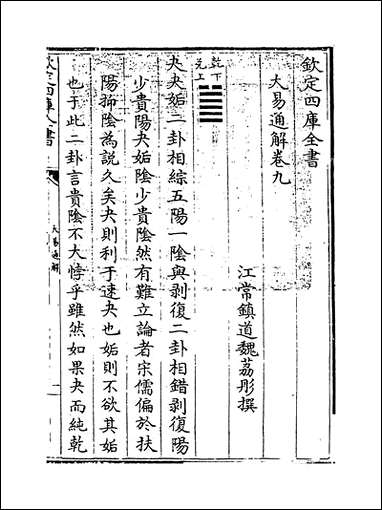 欽定四庫全書
大易通解卷九
江常鎮道魏荔彤撰
乾下
兊上
夬夬姤二卦相綜五陽一陰與剥復二卦相錯剥復陽
少貴陽夬姤陰少貴陰然有難立論者宋儒偏於扶
陽抑陰為說久矣夬則利于速夬也姤則不欲其姤
也于此二卦言貴陰不大悖乎雖然如果夬而純乾
欽定四庫全書
大易通解
一